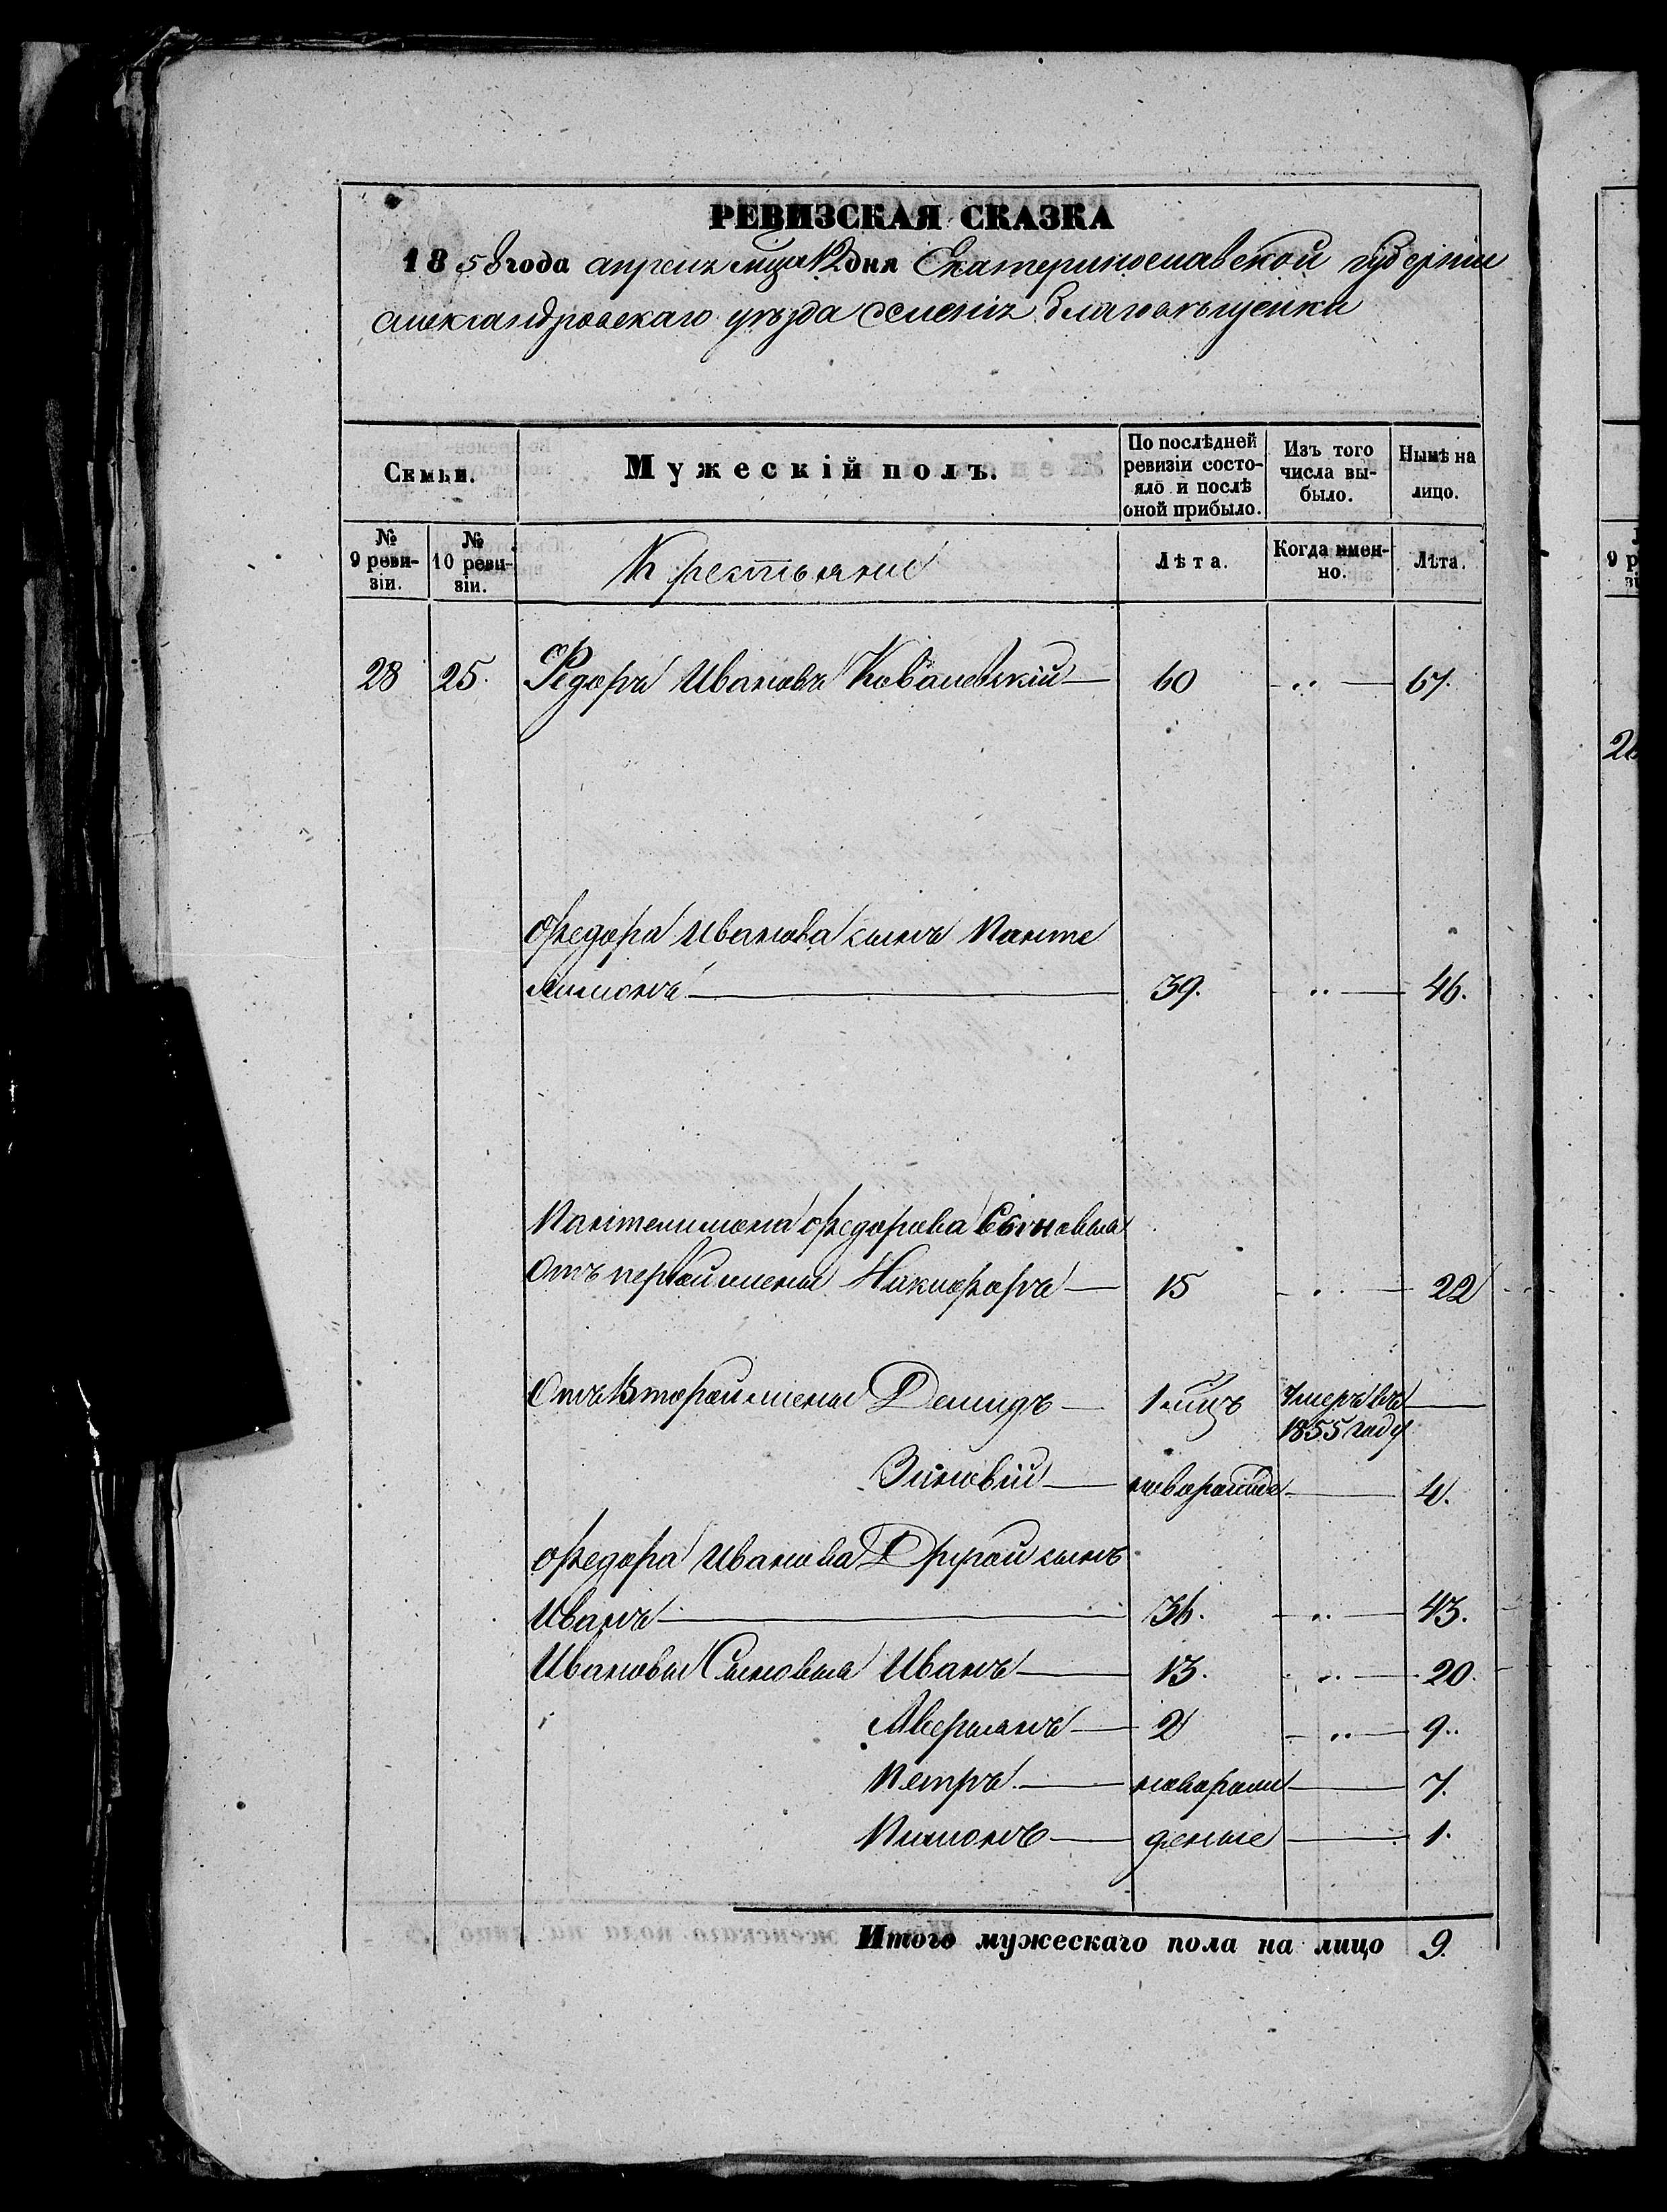 РЕВИЗСКАЯ СКАЗКА
1858 года апреля мца 12 дня Екатеринославской губернии
александровского уезда селения благовещенки
Семьи. Мужескій полъ. По послѣдней ревизіи состояло и послѣ оной прибыло. Изъ того числа выбыло. Нынѣ на лицо.
№ 9 ревизіи. № 10 ревизіи. Крестьяние Лѣта. Когда именно. Лѣта.
28 25. Федоръ Ивановъ Ковалевскій — 60 „ — 67.
Федора Иванова сынъ Панте
лимонъ — 39. „ — 46.
Пантелимона Федорова Сыновья
Отъ первой жены Никифоръ — 15 „ — 22
Отъ Второй жены Демидъ — 1 мцъ Умеръ въ 1855 году —
Зиновій — новорожде — 4.
Федора Иванова Другой сынъ
Иванъ — 36. „ — 43.
Ивановы Сыновья Иванъ — 13. „ — 20.
Аверьянъ — 2 „ — 9.
Петръ — новорож — 7.
Пимонъ — деные — 1.
Итого мужескаго пола на лицо 9.
9 р
28